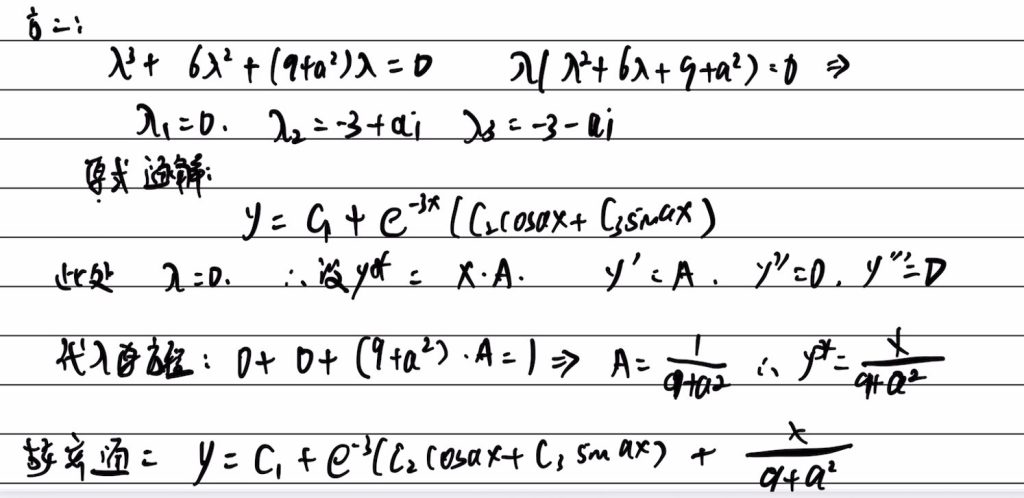 方二:
λ³ + 6λ² + (9+a²)λ = 0 λ(λ² + 6λ + 9 + a²) = 0 ⇒
λ₁ = 0. λ₂ = -3 + ai λ₃ = -3 - ai
原式通解:
y = C₁ + e^{-3x} (C₂cosax + C₃sinax)
此处 λ = 0. ∴ 设 y* = x·A. y' = A. y'' = 0. y''' = 0
代入原方程: 0 + 0 + (9+a²)·A = 1 ⇒ A = \frac{1}{9+a²} ∴ y* = \frac{x}{9+a²}
故 通 = y = C₁ + e^{-3} (C₂cosax + C₃ sin ax) + \frac{x}{9+a²}